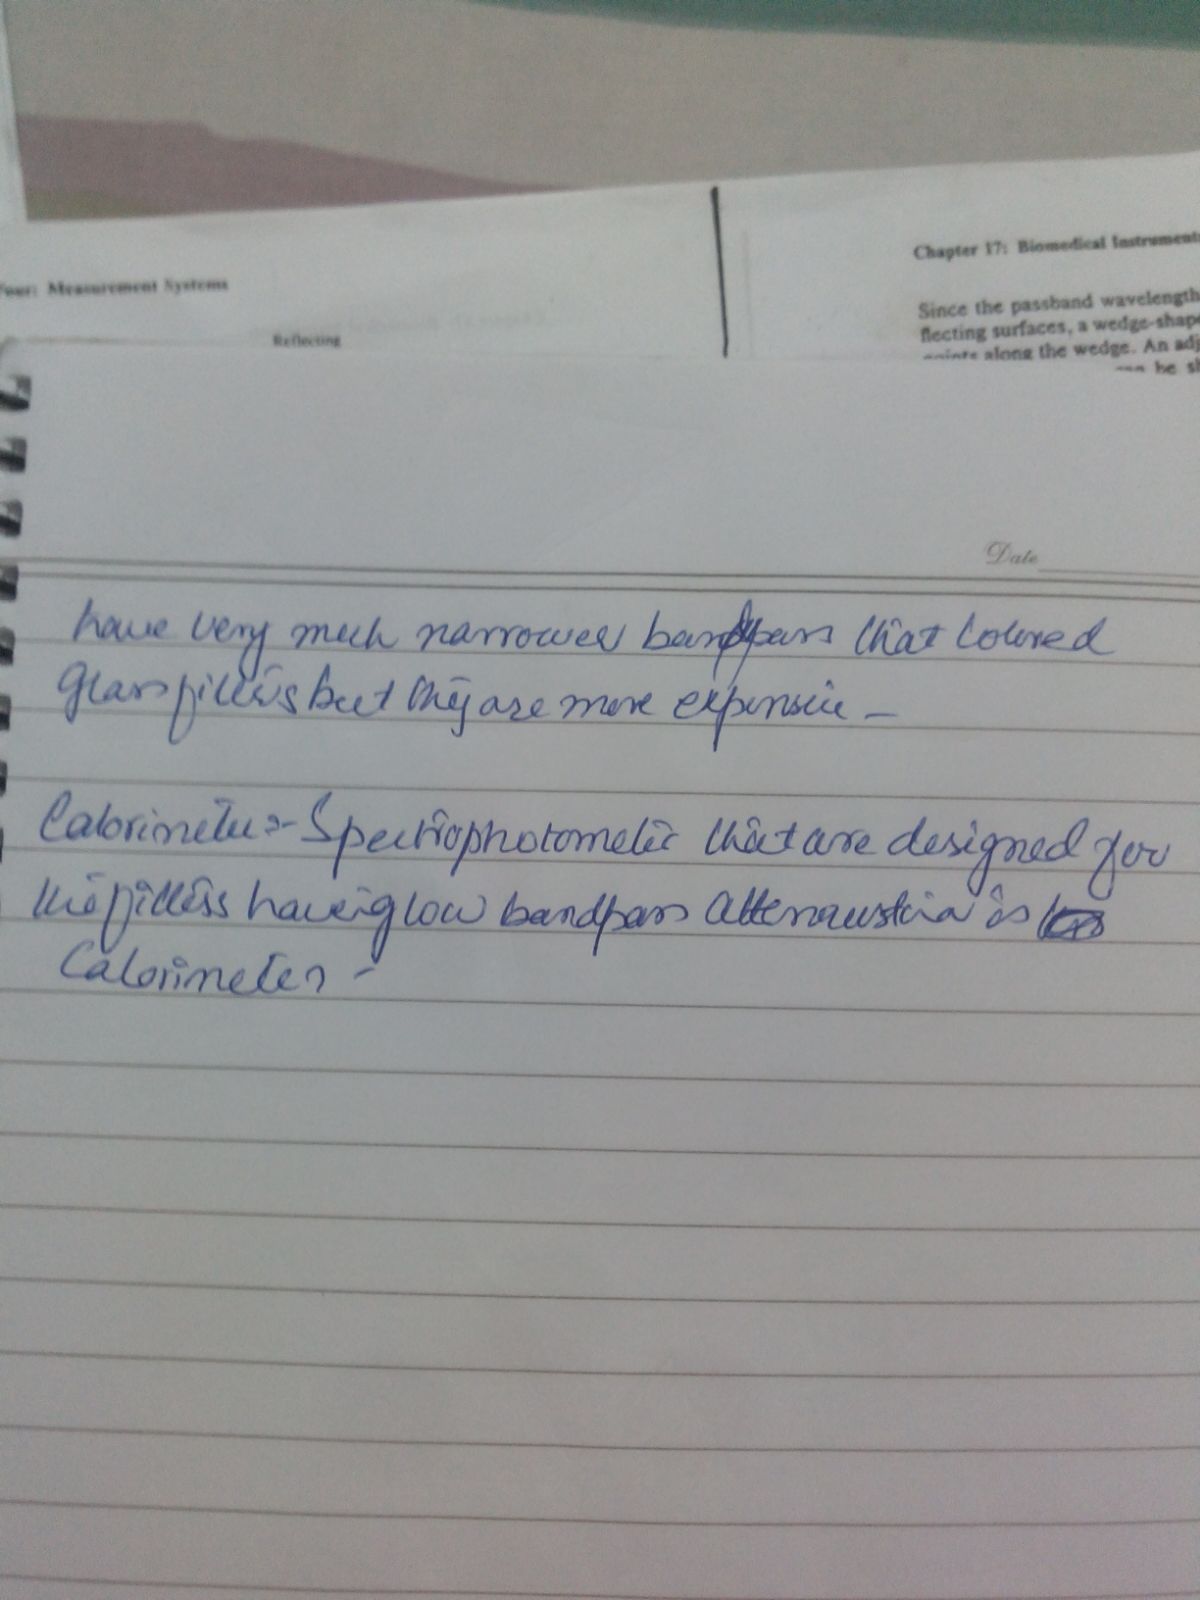 Four: Measurement Systems
Reflecting
Chapter 17: Biomedical Instrument
Since the passband wavelength
flecting surfaces, a wedge-shap
points along the wedge. An adj
can be sh
Date
have very much narrower bandpass that Colored
Glass filters but they are more expensive -
Calorimeter:- Spectrophotometer that are designed for
the filters having low bandpass attenuation is
Calorimeter -